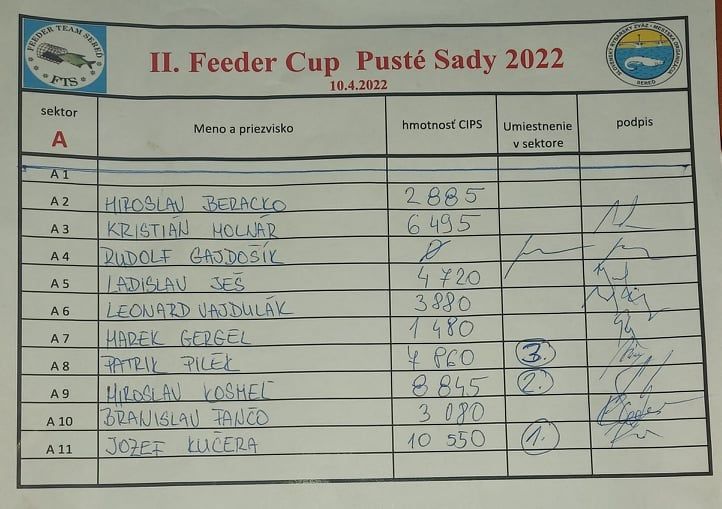 FEEDER TEAM SEREĎ
FTS
II. Feeder Cup Pusté Sady 2022
10.4.2022
SLOVENSKÝ RYBÁRSKY ZVÄZ - MESTSKÁ ORGANIZÁCIA
SEREĎ
sektor A Meno a priezvisko hmotnosť CIPS Umiestnenie v sektore podpis
A 1
A 2 MIROSLAV BERACKO 2 885
A 3 KRISTIÁN MOLNÁR 6 495
A 4 RUDOLF GAJDOŠÍK 0
A 5 LADISLAV JEŠ 4 720
A 6 LEONARD VAJDULÁK 3880
A 7 MAREK GERGEL 1 480
A 8 PATRIK PILEK 7 860 3.
A 9 MIROSLAV KOSMEĽ 8 845 2.
A 10 BRANISLAV PANČO 3 080
A 11 JOZEF KUČERA 10 550 1.